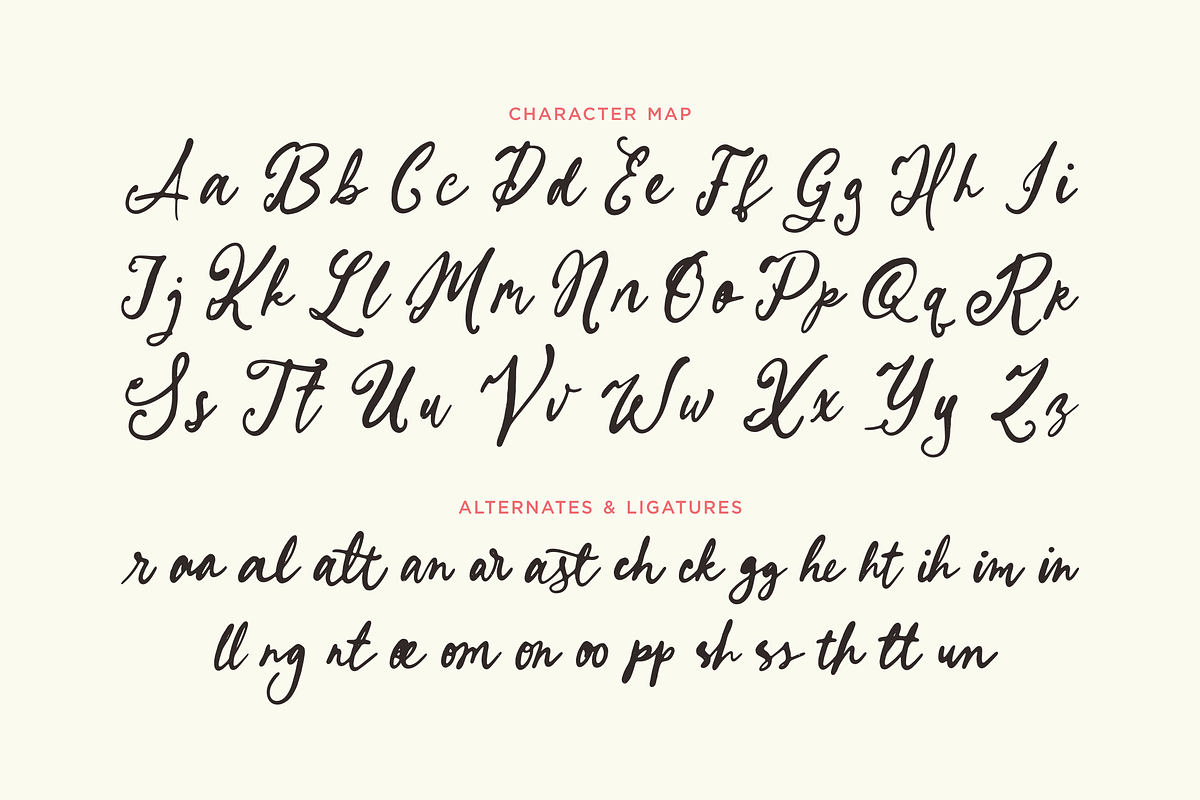 CHARACTER MAP
Aa Bb Cc Dd Ee Ff Gg Hh Ii
Jj Kk Ll Mm Nn Oo Pp Qq Rr
Ss Tt Uu Vv Ww Xx Yy Zz
ALTERNATES & LIGATURES
r aa al alt an ar ast ch ck gg he ht ih im in
ll ng nt oe om on oo pp sh ss th tt un